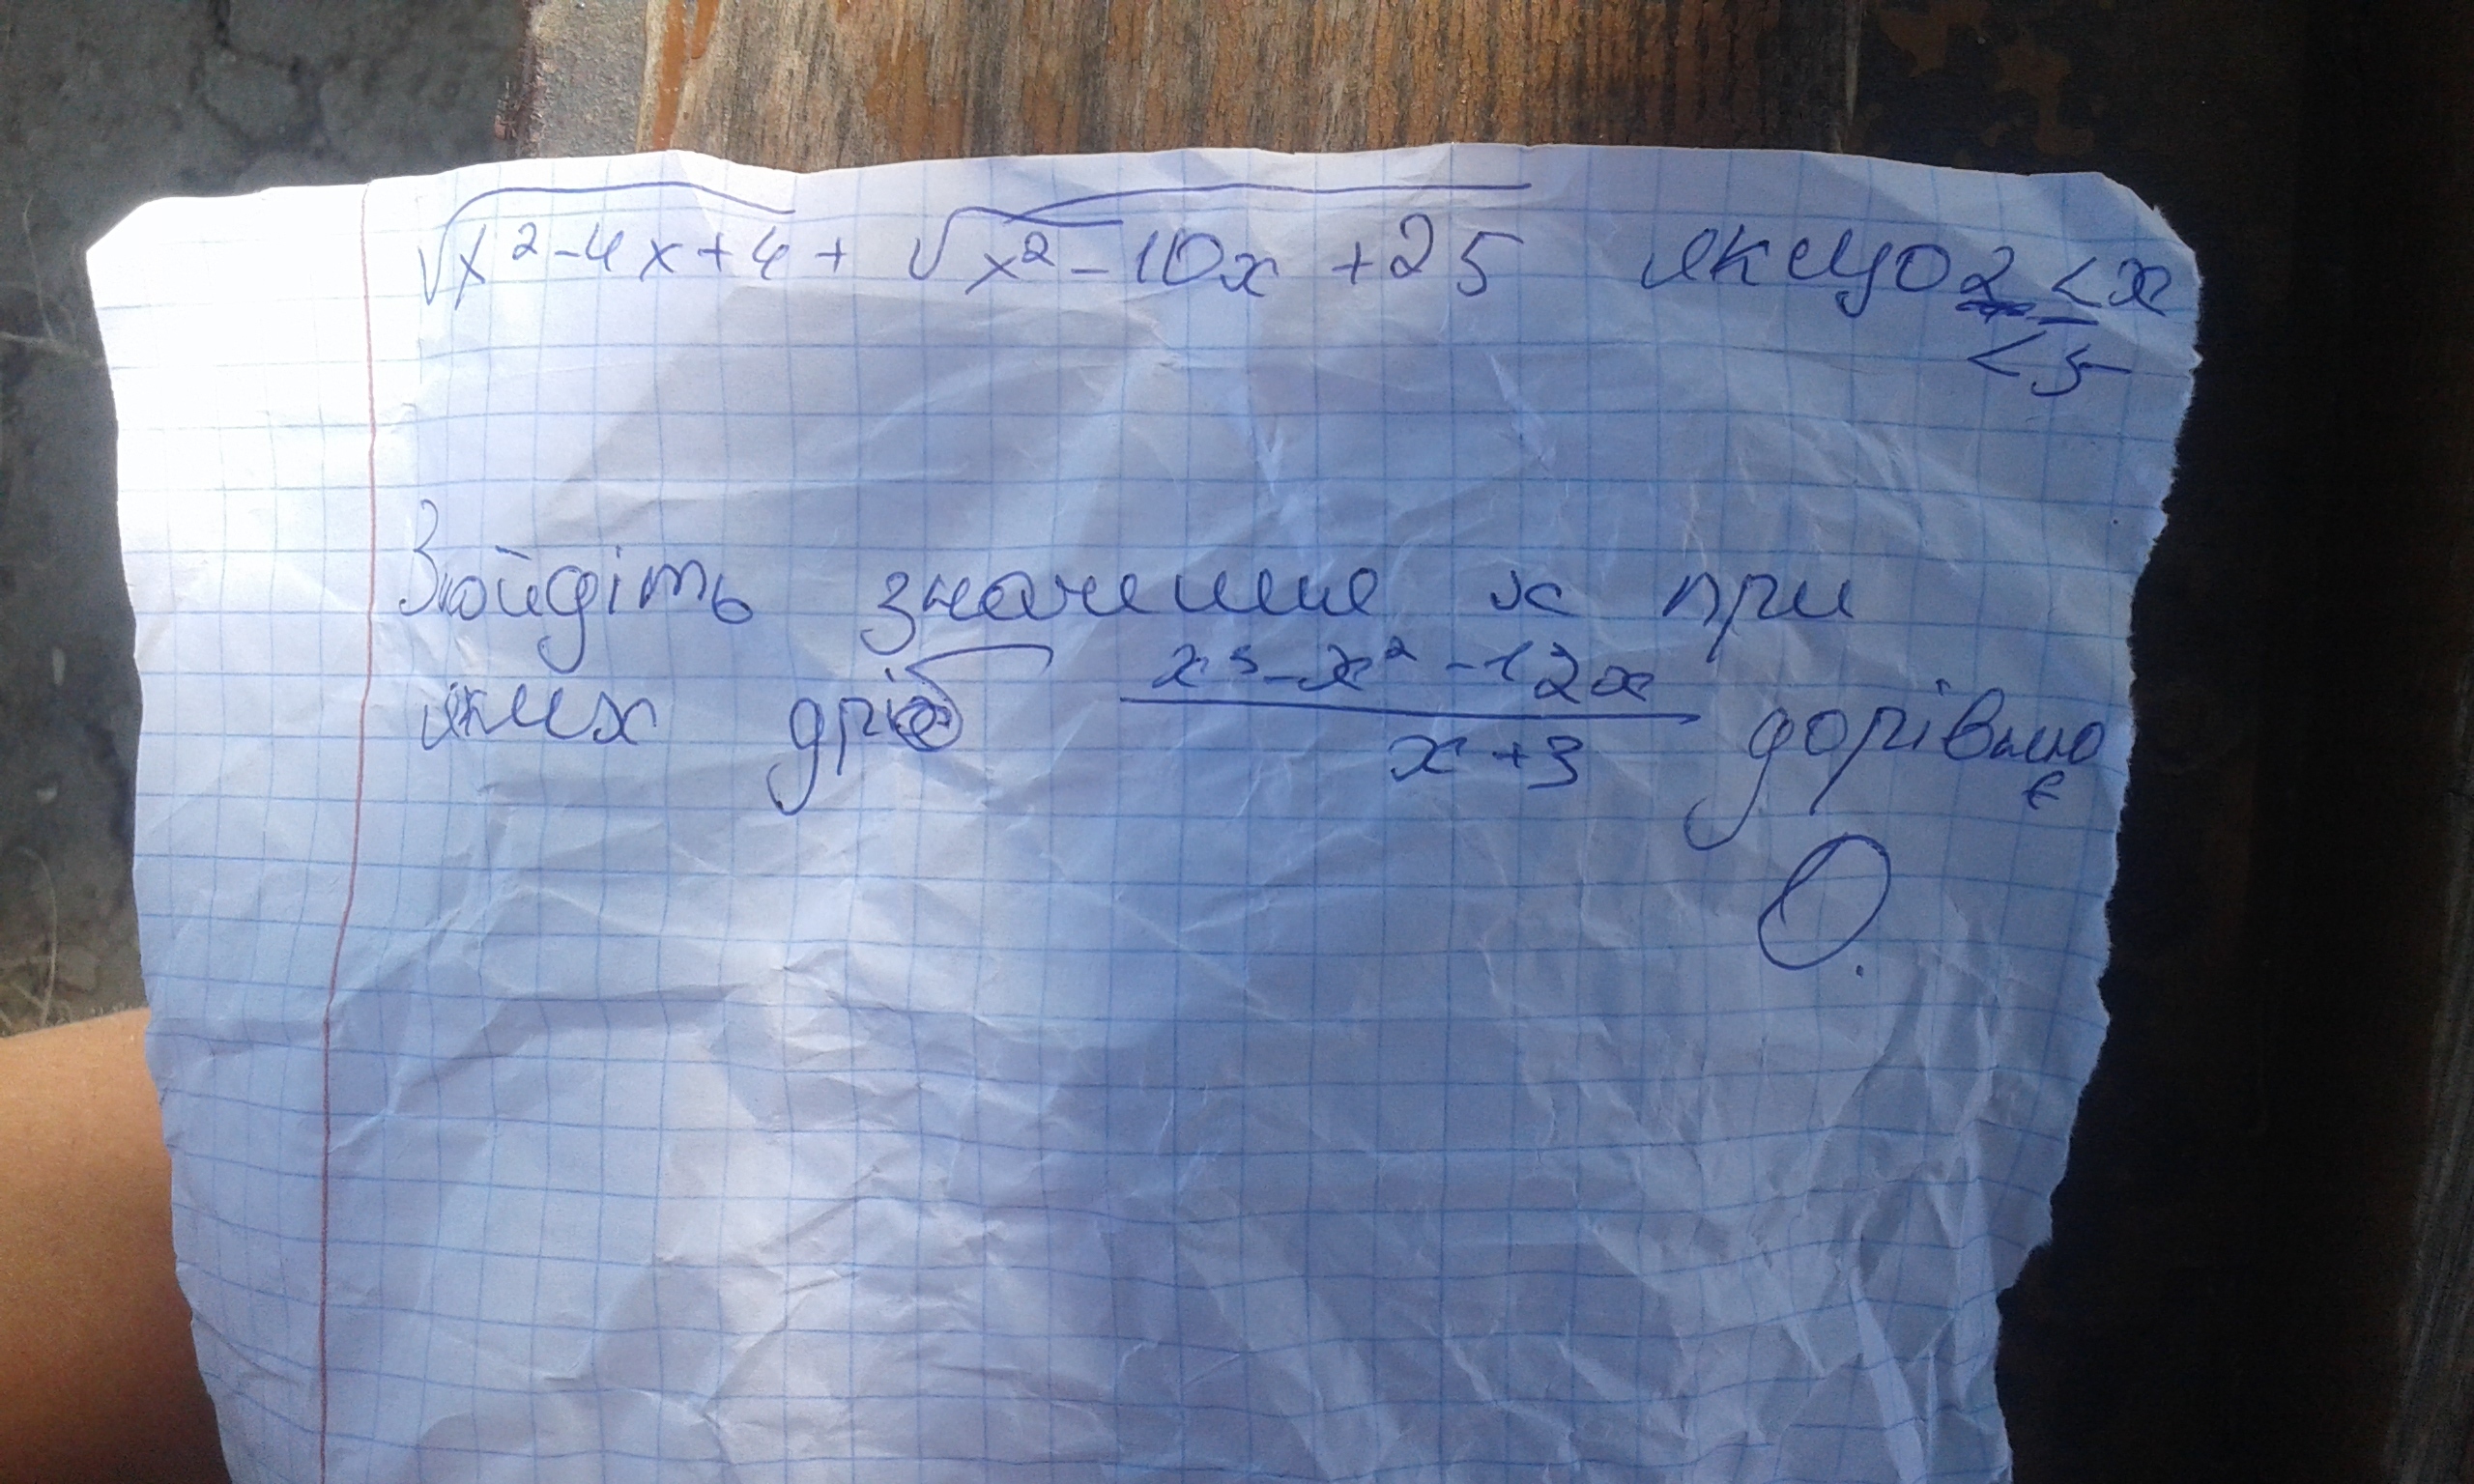 √x²-4x+4 + √x²-10x+25 якщо 2 ≤ x
< 5
Знайдіть значення x при
яких дріб x³-x²-12x / x+3 дорівнює
0.